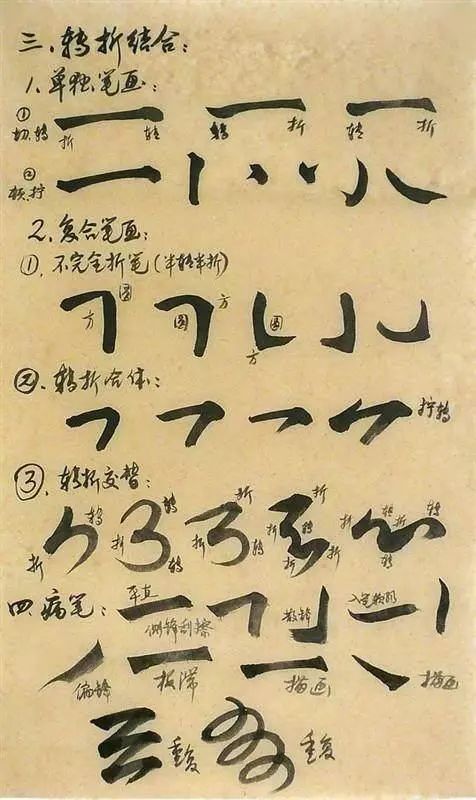 三、转折结合：
1.单独笔画：
① 切.转 折 转 转 折 转 折
② 顿.拧
2.复合笔画：
①.不完全折笔（半转半折）
方 圆 圆 方 圆 方
②.转折合体：
拧转
③.转折交替：
折 转 折 转 转 折 折 转 折 折 转 折 折 转 折 转 转
四.病笔：
平直 侧锋刮擦 散锋
偏锋 板滞 描画 描画
重复 重复